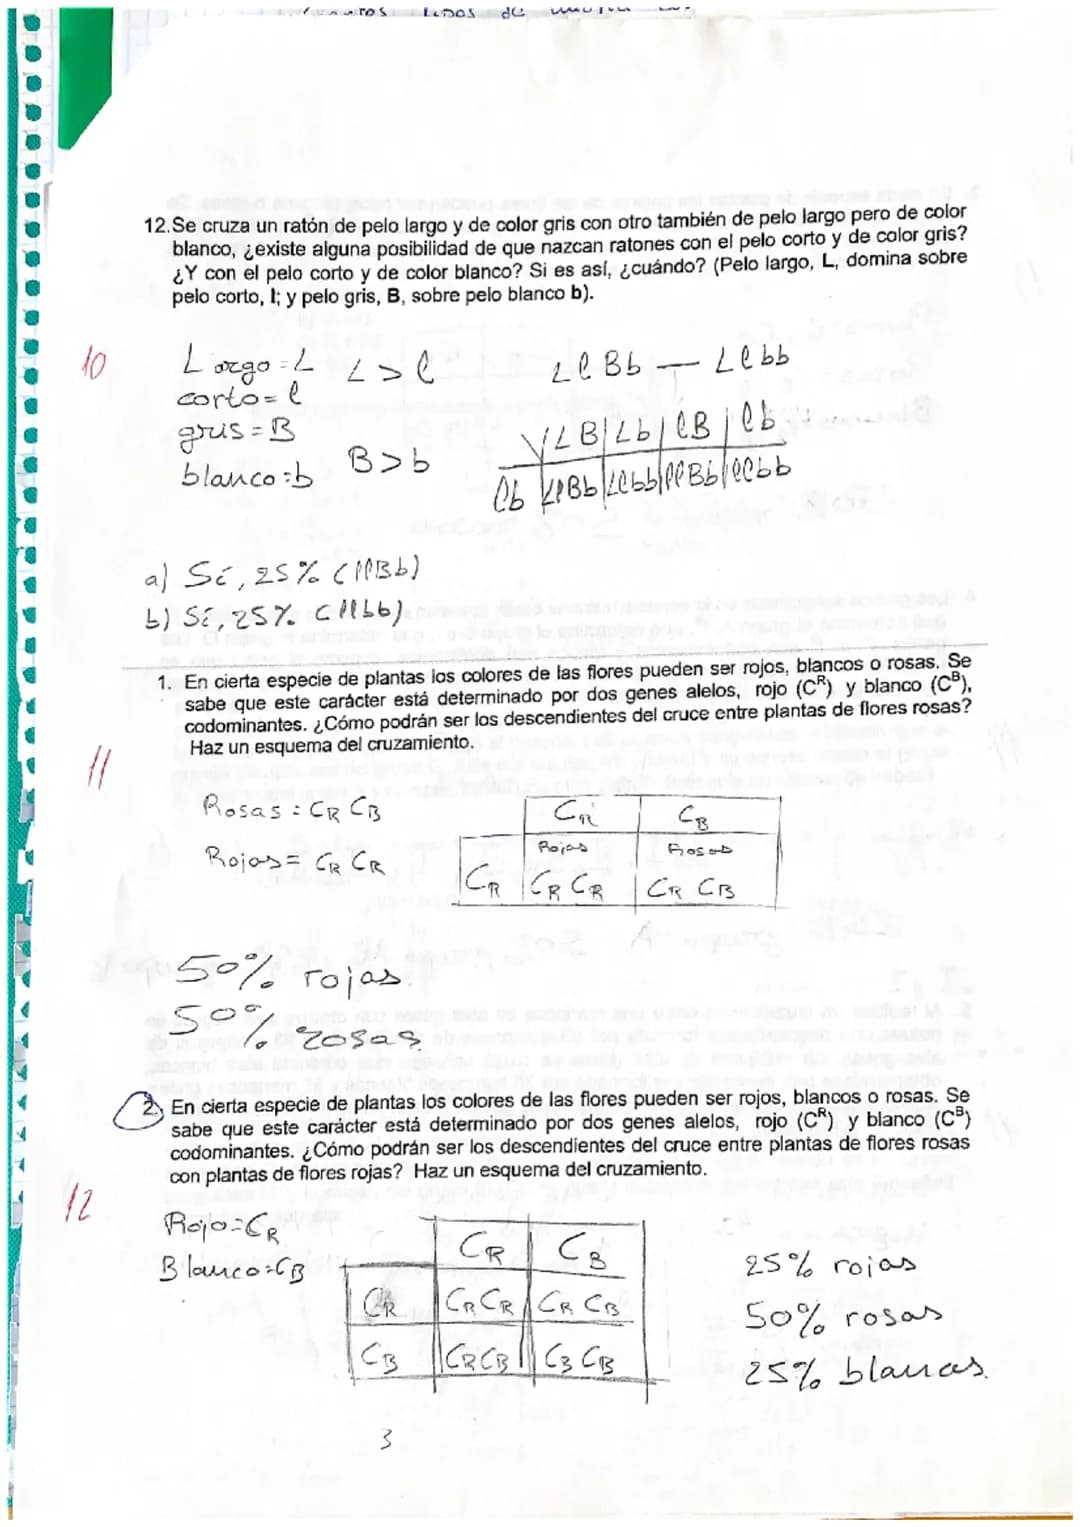 12. Se cruza un ratón de pelo largo y de color gris con otro también de pelo largo pero de color
blanco, ¿existe alguna posibilidad de que nazcan ratones con el pelo corto y de color gris?
¿Y con el pelo corto y de color blanco? Si es así, ¿cuándo? (Pelo largo, L, domina sobre
pelo corto, l; y pelo gris, B, sobre pelo blanco b).
10
Largo = L L > l
corto = l
gris = B
blanco = b B > b
LlBb — Llbb
LB Lb lB lb
lb LlBb Llbb llBb llbb
a) Sí, 25% (llBb)
b) Sí, 25% (llbb)
1. En cierta especie de plantas los colores de las flores pueden ser rojos, blancos o rosas. Se
sabe que este carácter está determinado por dos genes alelos, rojo (Cᴿ) y blanco (Cᴮ),
codominantes. ¿Cómo podrán ser los descendientes del cruce entre plantas de flores rosas?
Haz un esquema del cruzamiento.
11
Rosas : CR CB
Rojas = CR CR
CR CB
Rojas Rosas
CR CR CR CR CB
50% rojas.
50% rosas.
2. En cierta especie de plantas los colores de las flores pueden ser rojos, blancos o rosas. Se
sabe que este carácter está determinado por dos genes alelos, rojo (Cᴿ) y blanco (Cᴮ)
codominantes. ¿Cómo podrán ser los descendientes del cruce entre plantas de flores rosas
con plantas de flores rojas? Haz un esquema del cruzamiento.
12
Rojo = CR
Blanco = CB
CR CB
CR CR CR CR CB
CB CR CB CB CB
25% rojas
50% rosas
25% blancas.
3